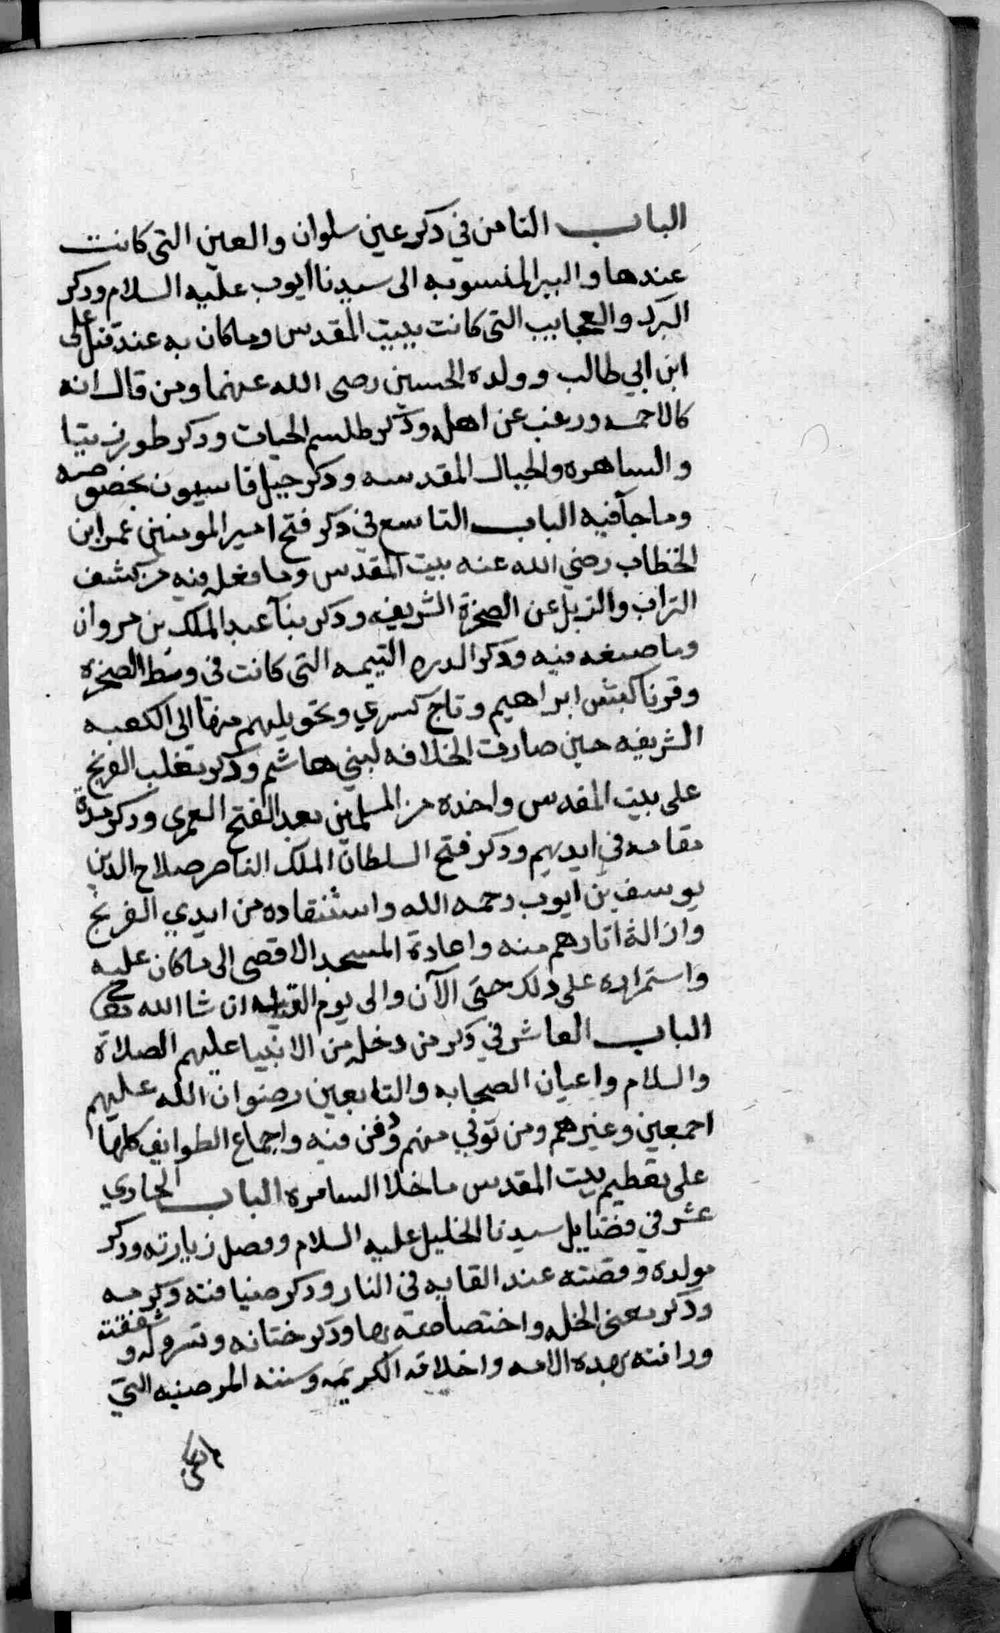 الباب الثامن في ذكر عين سلوان والعين التى كانت
عندها والبير المنسوبه الى سيدنا ايوب عليه السلام وذكر
البرك والعجايب التى كانت ببيت المقدس وماكان به عند قتل على
ابن ابي طالب وولده الحسين رضى الله عنهما ومن قال انه
كالاجمه ورغب عن اهله وذكر طلسم الحيات وذكر طور زيتا
والساهره والجبال المقدسه وذكر جبل قاسيون بخصوصه
وما جآ فيه الباب التاسع فى ذكر فتح امير المومنين عمر ابن
الخطاب رضي الله عنه بيت المقدس وما فعله فيه من كشف
التراب والزبل عن الصخرة الشريفه وذكر بنآ عبد الملك بن مروان
وما صنعه فيه وذكر الدره اليتيمه التى كانت فى وسط الصخره
وقرنا كبش ابراهيم وتاج كسري وتحويلهم منها الى الكعبه
الشريفه حين صارت الخلافه لبني هاشم وذكر تغلب الفرنج
على بيت المقدس واخذه من المسلمين بعد الفتح العمرى وذكر مدة
مقامه في ايديهم وذكر فتح السلطان الملك الناصر صلاح الدين
يوسف بن ايوب رحمه الله واستنقاده من ايدي الفرنج
وازالة اثارهم منه واعادة المسجد الاقصى الى ماكان عليه
واستمراره على ذلك حتى الآن والى يوم القيامه ان شا الله تعالى
الباب العاشر في ذكر من دخله من الانبيا عليهم الصلاة
والسلام واعيان الصحابه والتابعين رضوان الله عليهم
اجمعين وغيرهم ومن توفي منهم ودفن فيه واجماع الطوايف كلها
على تعظيم بيت المقدس ماخلا السامره الباب الحادي
عشر في فضايل سيدنا الخليل عليه السلام وفصل زيارته وذكر
مولده وقصته عند القايه فى النار وذكر ضيافته وكرمه
وذكر معنى الخله واختصاصه بها وذكر ختانه وتسروله وشفقته
ورافته بهذه الامه واخلاقه الكريمه وسننه المرضيه التي